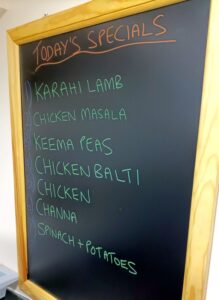 TODAY'S SPECIALS
KARAHI LAMB
CHICKEN MASALA
KEEMA PEAS
CHICKEN BALTI
CHICKEN
CHANNA
SPINACH + POTATOES